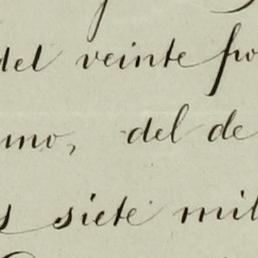 del veinte
del de
siete mil